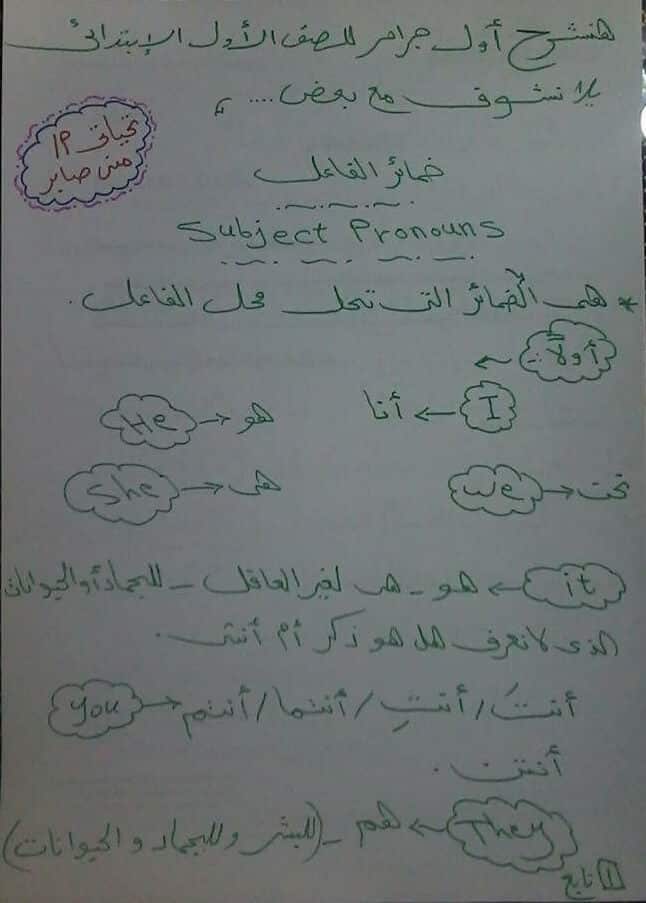 هنشرح أول جرامر للصف الأول الإبتدائى
يلا نشوف مع بعض ....
تحياتى م/
منى صابر
ضمائر الفاعل
Subject Pronouns
* هى الضمائر التى تحل محل الفاعل .
أولاً :-
I ← أنا
هو → He
نحن → We
هى → She
it ← هو - هى لغير العاقل - للجماد أو الحيوانات
الذى لا نعرف هل هو ذكر أم أنثى .
أنتَ / أنتِ / أنتما / أنتم → you
أنتن .
They ← هم - (للبشر وللجماد والحيوانات)
1 تابع